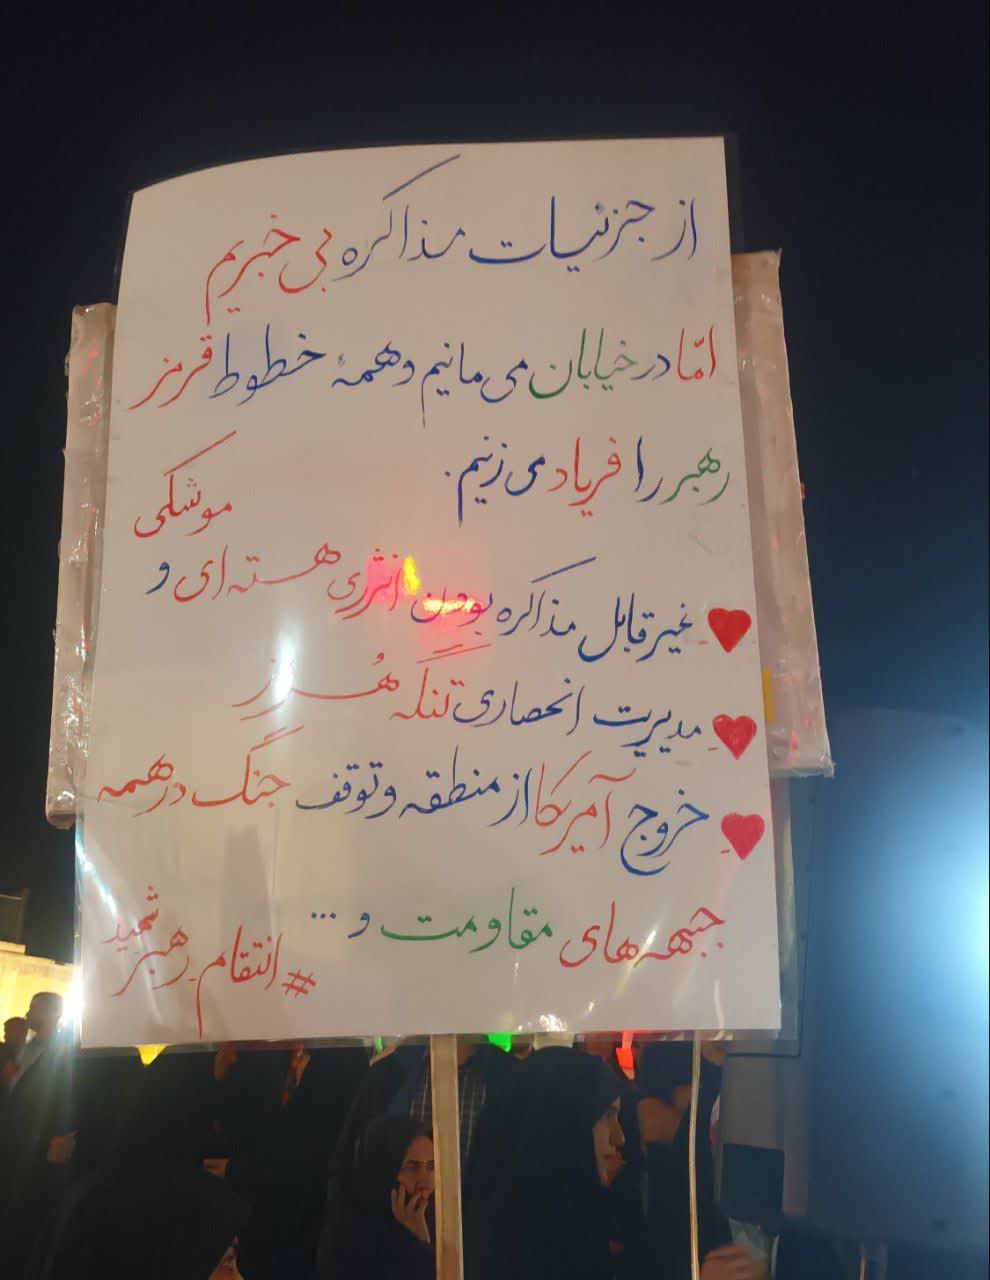 از جزئیات مذاکره بی خبریم
امّا در خیابان می مانیم و همهٔ خطوط قرمز
رهبر را فریاد می زنیم.
غیر قابل مذاکره بودن انرژی هسته ای و موشکی
مدیریت انحصاری تنگه هُرمز
خروج آمریکا از منطقه و توقف جنگ در همه
جبهه های مقاومت و ...
#انتقام_رهبر_شهید